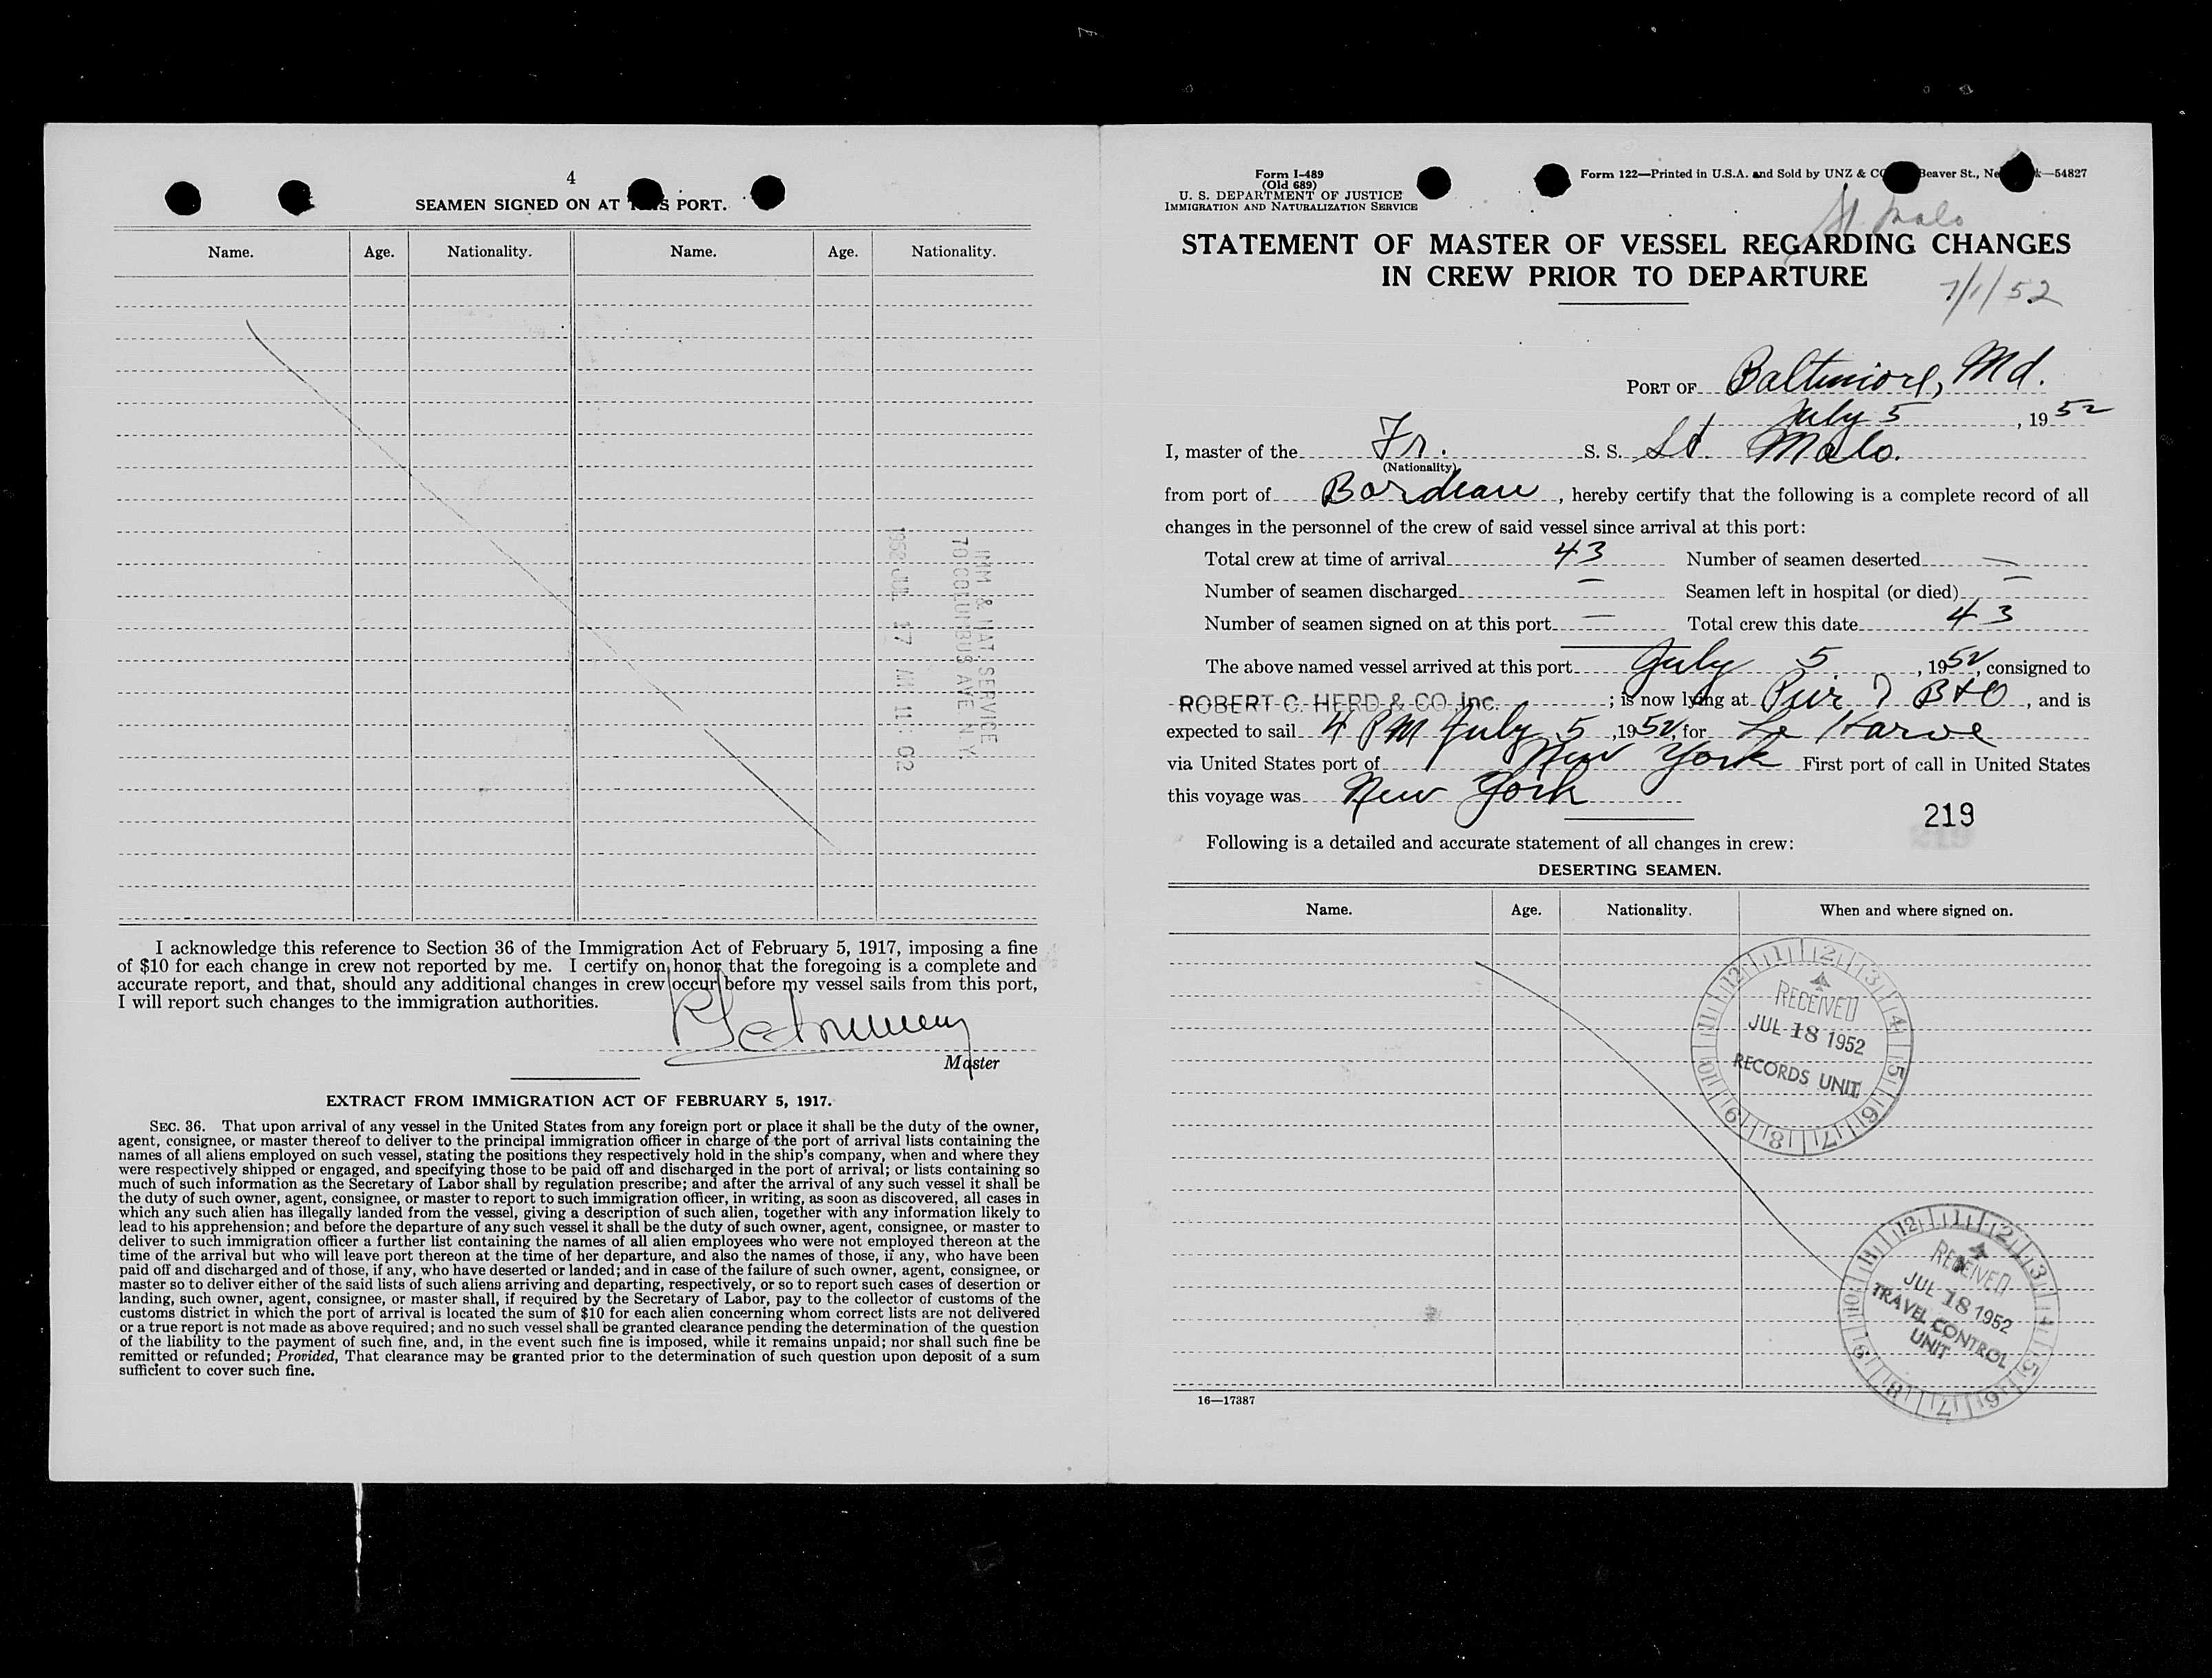 4
SEAMEN SIGNED ON AT THIS PORT.
Name. Age. Nationality. Name. Age. Nationality.
IMM & NAT. SERVICE
70 COLUMBUS AVE. N. Y.
1952 JUL 17 AM 11: 02
I acknowledge this reference to Section 36 of the Immigration Act of February 5, 1917, imposing a fine
of $10 for each change in crew not reported by me. I certify on honor that the foregoing is a complete and
accurate report, and that, should any additional changes in crew occur before my vessel sails from this port,
I will report such changes to the immigration authorities.
Master
EXTRACT FROM IMMIGRATION ACT OF FEBRUARY 5, 1917.
SEC. 36. That upon arrival of any vessel in the United States from any foreign port or place it shall be the duty of the owner,
agent, consignee, or master thereof to deliver to the principal immigration officer in charge of the port of arrival lists containing the
names of all aliens employed on such vessel, stating the positions they respectively hold in the ship's company, when and where they
were respectively shipped or engaged, and specifying those to be paid off and discharged in the port of arrival; or lists containing so
much of such information as the Secretary of Labor shall by regulation prescribe; and after the arrival of any such vessel it shall be
the duty of such owner, agent, consignee, or master to report to such immigration officer, in writing, as soon as discovered, all cases in
which any such alien has illegally landed from the vessel, giving a description of such alien, together with any information likely to
lead to his apprehension; and before the departure of any such vessel it shall be the duty of such owner, agent, consignee, or master to
deliver to such immigration officer a further list containing the names of all alien employees who were not employed thereon at the
time of the arrival but who will leave port thereon at the time of her departure, and also the names of those, if any, who have been
paid off and discharged and of those, if any, who have deserted or landed; and in case of the failure of such owner, agent, consignee, or
master so to deliver either of the said lists of such aliens arriving and departing, respectively, or so to report such cases of desertion or
landing, such owner, agent, consignee, or master shall, if required by the Secretary of Labor, pay to the collector of customs of the
customs district in which the port of arrival is located the sum of $10 for each alien concerning whom correct lists are not delivered
or a true report is not made as above required; and no such vessel shall be granted clearance pending the determination of the question
of the liability to the payment of such fine, and, in the event such fine is imposed, while it remains unpaid; nor shall such fine be
remitted or refunded; Provided, That clearance may be granted prior to the determination of such question upon deposit of a sum
sufficient to cover such fine.
Form I-489
(Old 689)
U. S. DEPARTMENT OF JUSTICE
IMMIGRATION AND NATURALIZATION SERVICE
Form 122—Printed in U.S.A. and Sold by UNZ & CO Beaver St., Ne k—54827
St. Malo
STATEMENT OF MASTER OF VESSEL REGARDING CHANGES
IN CREW PRIOR TO DEPARTURE
7/1/52
PORT OF Baltimore, Md.
July 5, 1952
I, master of the Fr. S. S. St. Malo.
(Nationality)
from port of Bordeau, hereby certify that the following is a complete record of all
changes in the personnel of the crew of said vessel since arrival at this port:
Total crew at time of arrival 43 Number of seamen deserted —
Number of seamen discharged — Seamen left in hospital (or died) —
Number of seamen signed on at this port — Total crew this date 43
The above named vessel arrived at this port July 5, 1952, consigned to
ROBERT C. HERD & CO. Inc.; is now lying at Pier 7 B&O, and is
expected to sail 4 PM July 5, 1952, for Le Harve
via United States port of New York First port of call in United States
this voyage was New York
219
Following is a detailed and accurate statement of all changes in crew:
DESERTING SEAMEN.
Name. Age. Nationality. When and where signed on.
12 1 2 3 4 5 6 7 8 9 10 11
RECEIVED
JUL 18 1952
RECORDS UNIT
12 1 2 3 4 5 6 7 8 9 10 11
RECEIVED
JUL 18 1952
TRAVEL CONTROL
UNIT
16—17387